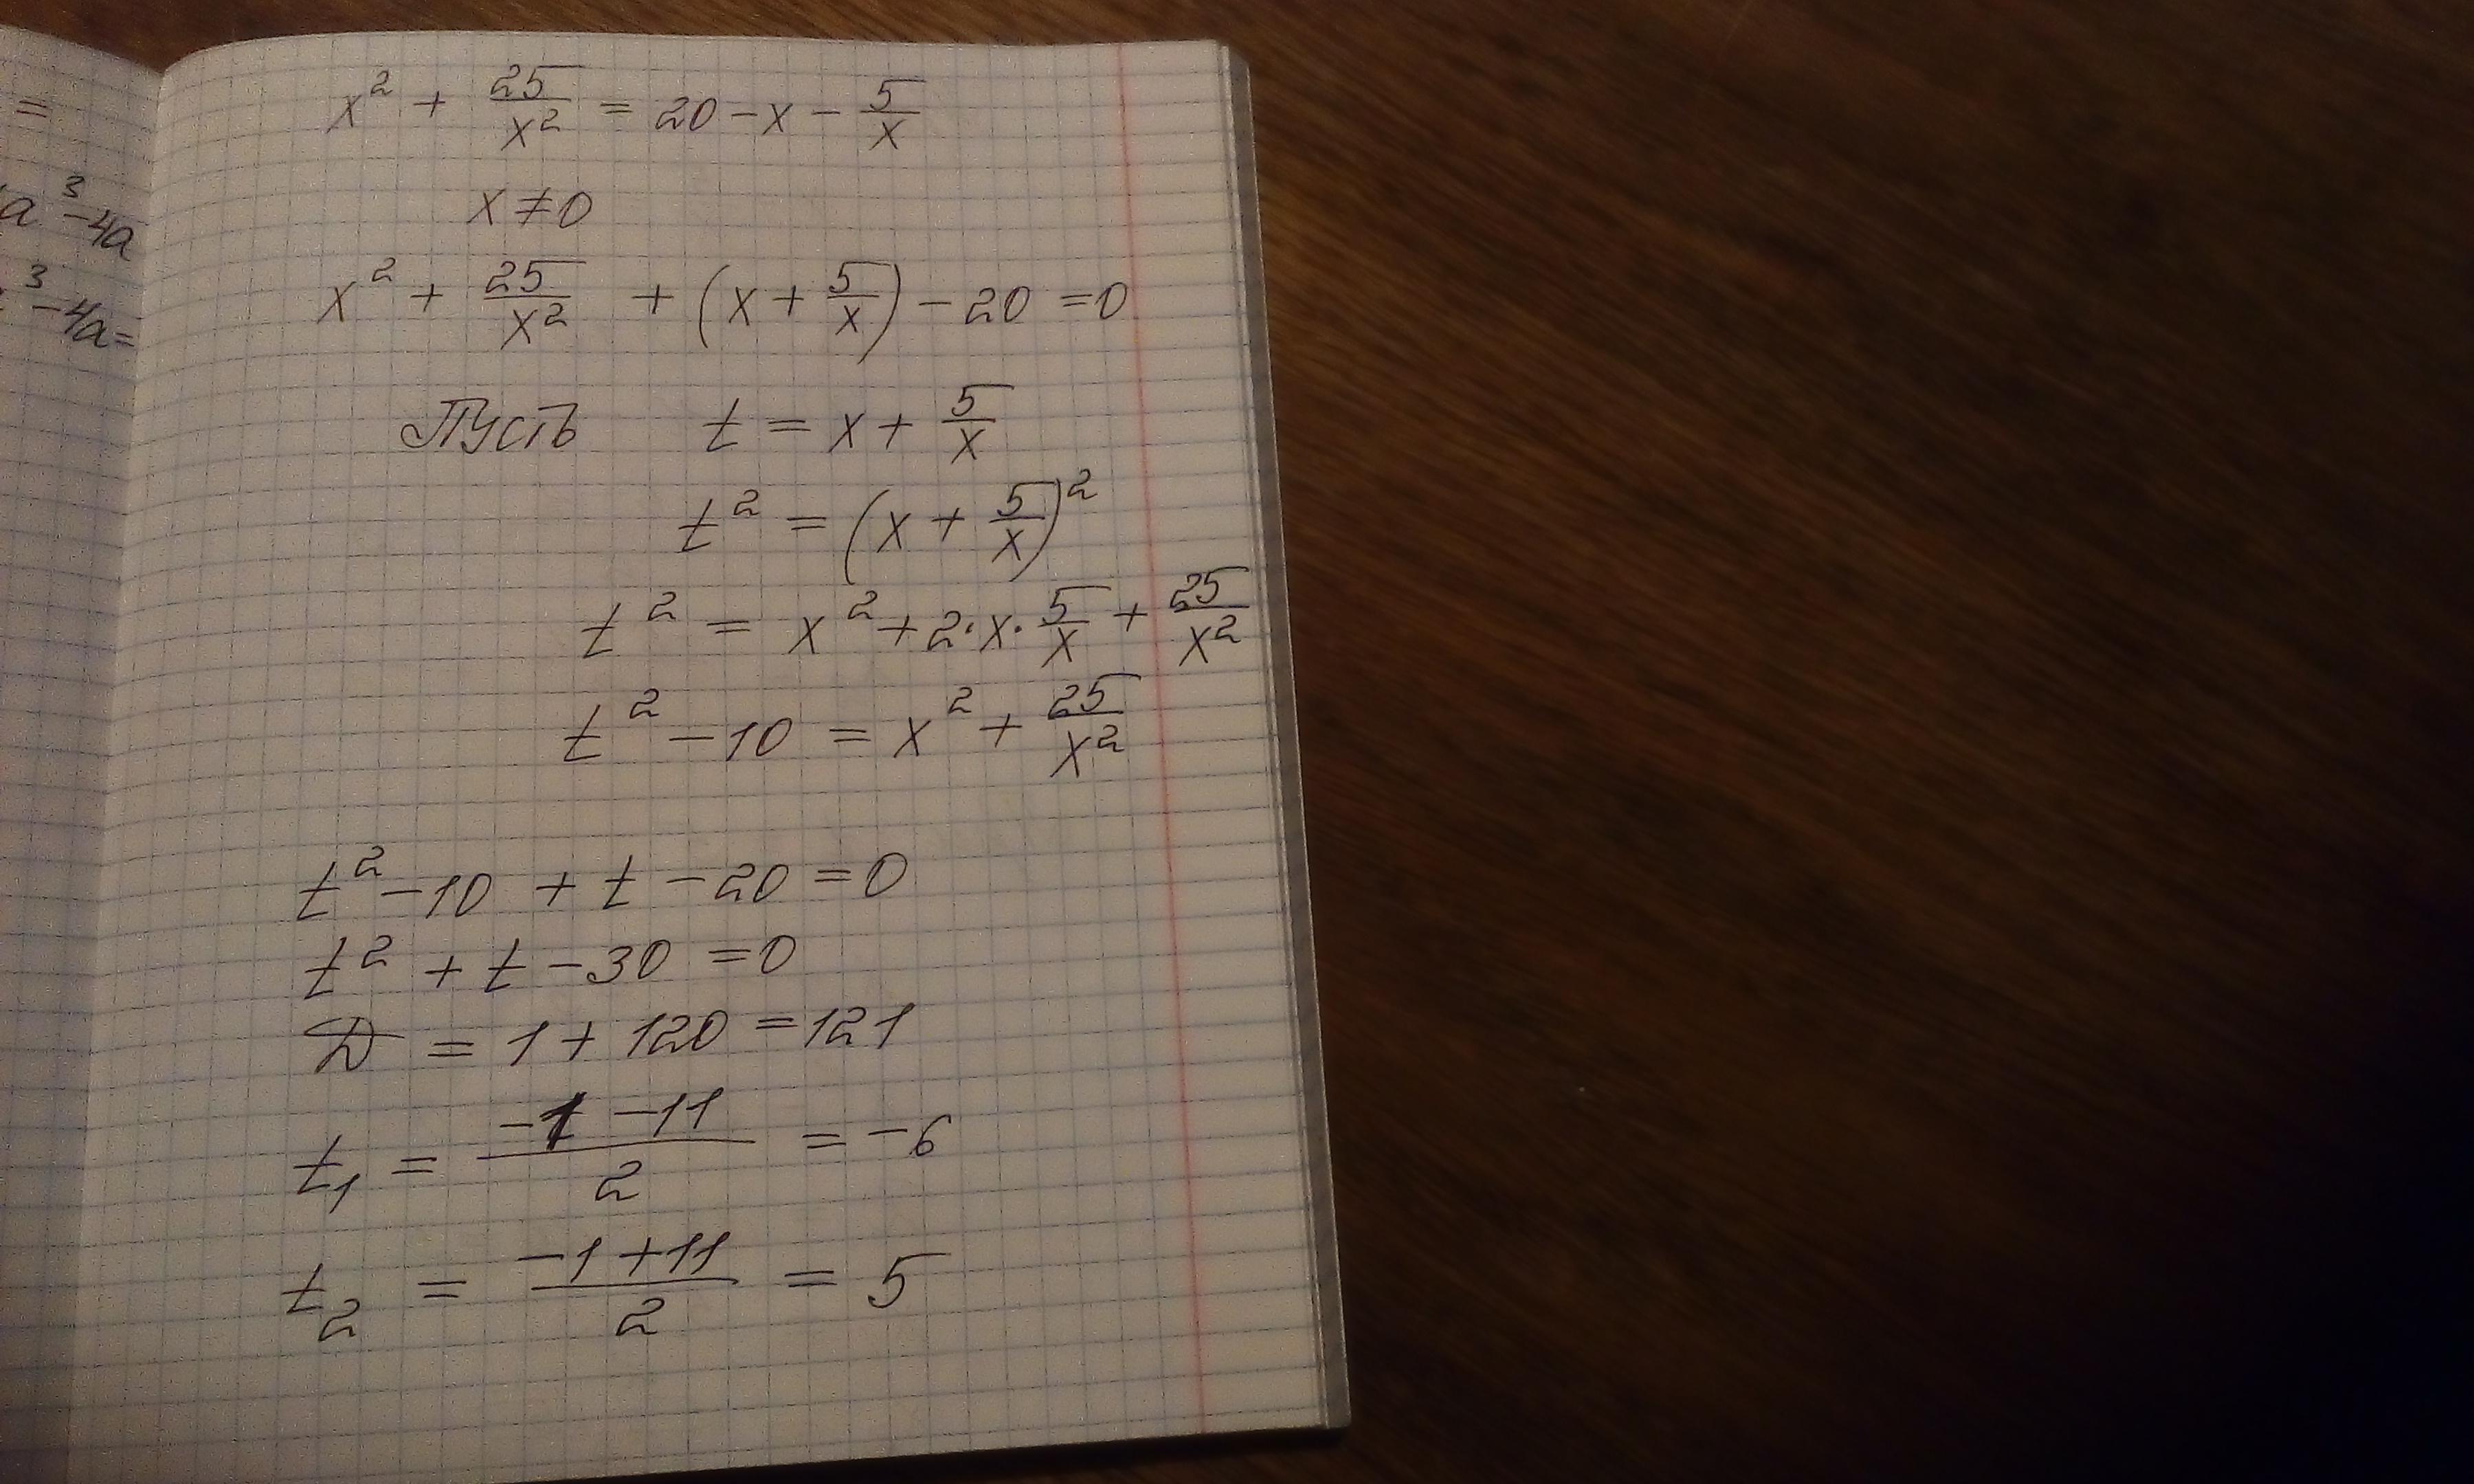 =
a³-4a
³-4a=
x² + 25/x² = 20 - x - 5/x
x ≠ 0
x² + 25/x² + (x + 5/x) - 20 = 0
Пусть t = x + 5/x
t² = (x + 5/x)²
t² = x² + 2·x·5/x + 25/x²
t² - 10 = x² + 25/x²
t² - 10 + t - 20 = 0
t² + t - 30 = 0
D = 1 + 120 = 121
t₁ = (-1 - 11)/2 = -6
t₂ = (-1 + 11)/2 = 5